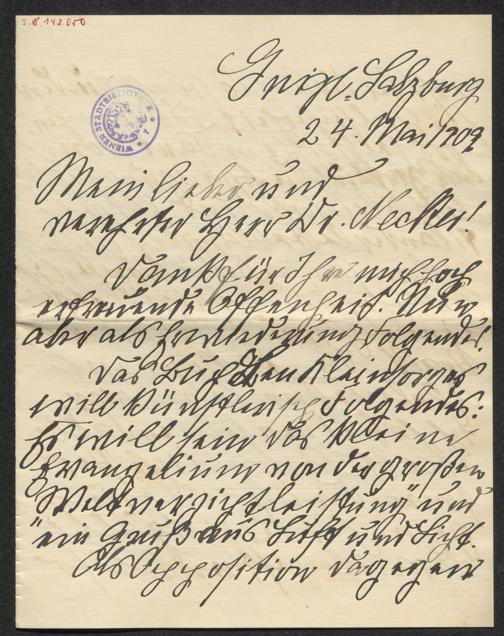 J.N. 143.050
WIENER STADTBIBLIOTHEK
Gnigl-Salzburg
24. Mai 1909
Mein lieber und
verehrter Herr Dr. Necker!
Dank für Ihre mich hoch
erfreuende Offenheit. Nun
aber als Erwiderung Folgendes.
Das Buch Kleinsorges
will künstlerisch Folgendes:
Es will sein das kleine
Evangelium von der großen
Weltverzichtleistung" und
"ein Gruß aus Luft und Licht.
Als Opposition dagegen